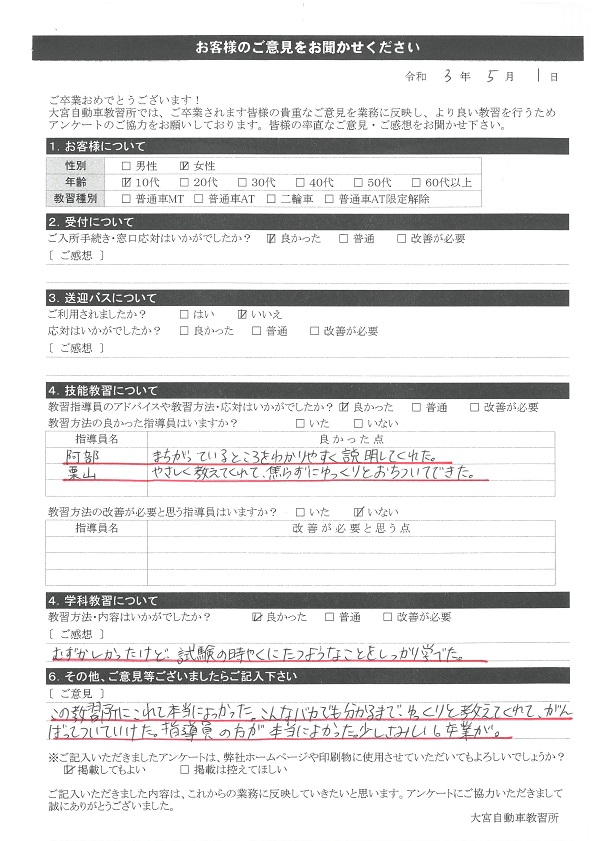 お客様のご意見をお聞かせください
令和 3 年 5 月 1 日
ご卒業おめでとうございます！
大宮自動車教習所では、ご卒業されます皆様の貴重なご意見を業務に反映し、より良い教習を行うため
アンケートのご協力をお願いしております。皆様の率直なご意見・ご感想をお聞かせ下さい。
1. お客様について
性別 □ 男性 ☑ 女性
年齢 ☑ 10代 □ 20代 □ 30代 □ 40代 □ 50代 □ 60代以上
教習種別 □ 普通車MT □ 普通車AT □ 二輪車 □ 普通車AT限定解除
2. 受付について
ご入所手続き・窓口応対はいかがでしたか？ ☑ 良かった □ 普通 □ 改善が必要
［ ご感想 ］
3. 送迎バスについて
ご利用されましたか？ □ はい ☑ いいえ
応対はいかがでしたか？ □ 良かった □ 普通 □ 改善が必要
［ ご感想 ］
4. 技能教習について
教習指導員のアドバイスや教習方法・応対はいかがでしたか？ ☑ 良かった □ 普通 □ 改善が必要
教習方法の良かった指導員はいますか？ □ いた □ いない
指導員名 良かった点
阿部 まちがっているところをわかりやすく説明してくれた。
栗山 やさしく教えてくれて、焦らずにゆっくりとおちついてできた。
教習方法の改善が必要と思う指導員はいますか？ □ いた ☑ いない
指導員名 改善が必要と思う点
4. 学科教習について
教習方法・内容はいかがでしたか？ ☑ 良かった □ 普通 □ 改善が必要
［ ご感想 ］
むずかしかったけど、試験の時やくにたつようなことをしっかり学べた。
6. その他、ご意見等ございましたらご記入下さい
［ ご意見 ］
この教習所にこれて本当によかった。こんなバカでも分かるまで、ゆっくりと教えてくれて、がん
ばってついていけた。指導員の方が本当によかった。少しさみしいな卒業が。
※ご記入いただきましたアンケートは、弊社ホームページや印刷物に使用させていただいてもよろしいでしょうか？
☑ 掲載してもよい □ 掲載は控えてほしい
ご記入いただきました内容は、これからの業務に反映していきたいと思います。アンケートにご協力いただきまして
誠にありがとうございました。
大宮自動車教習所